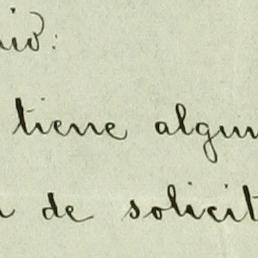 tiene algun
de solicit